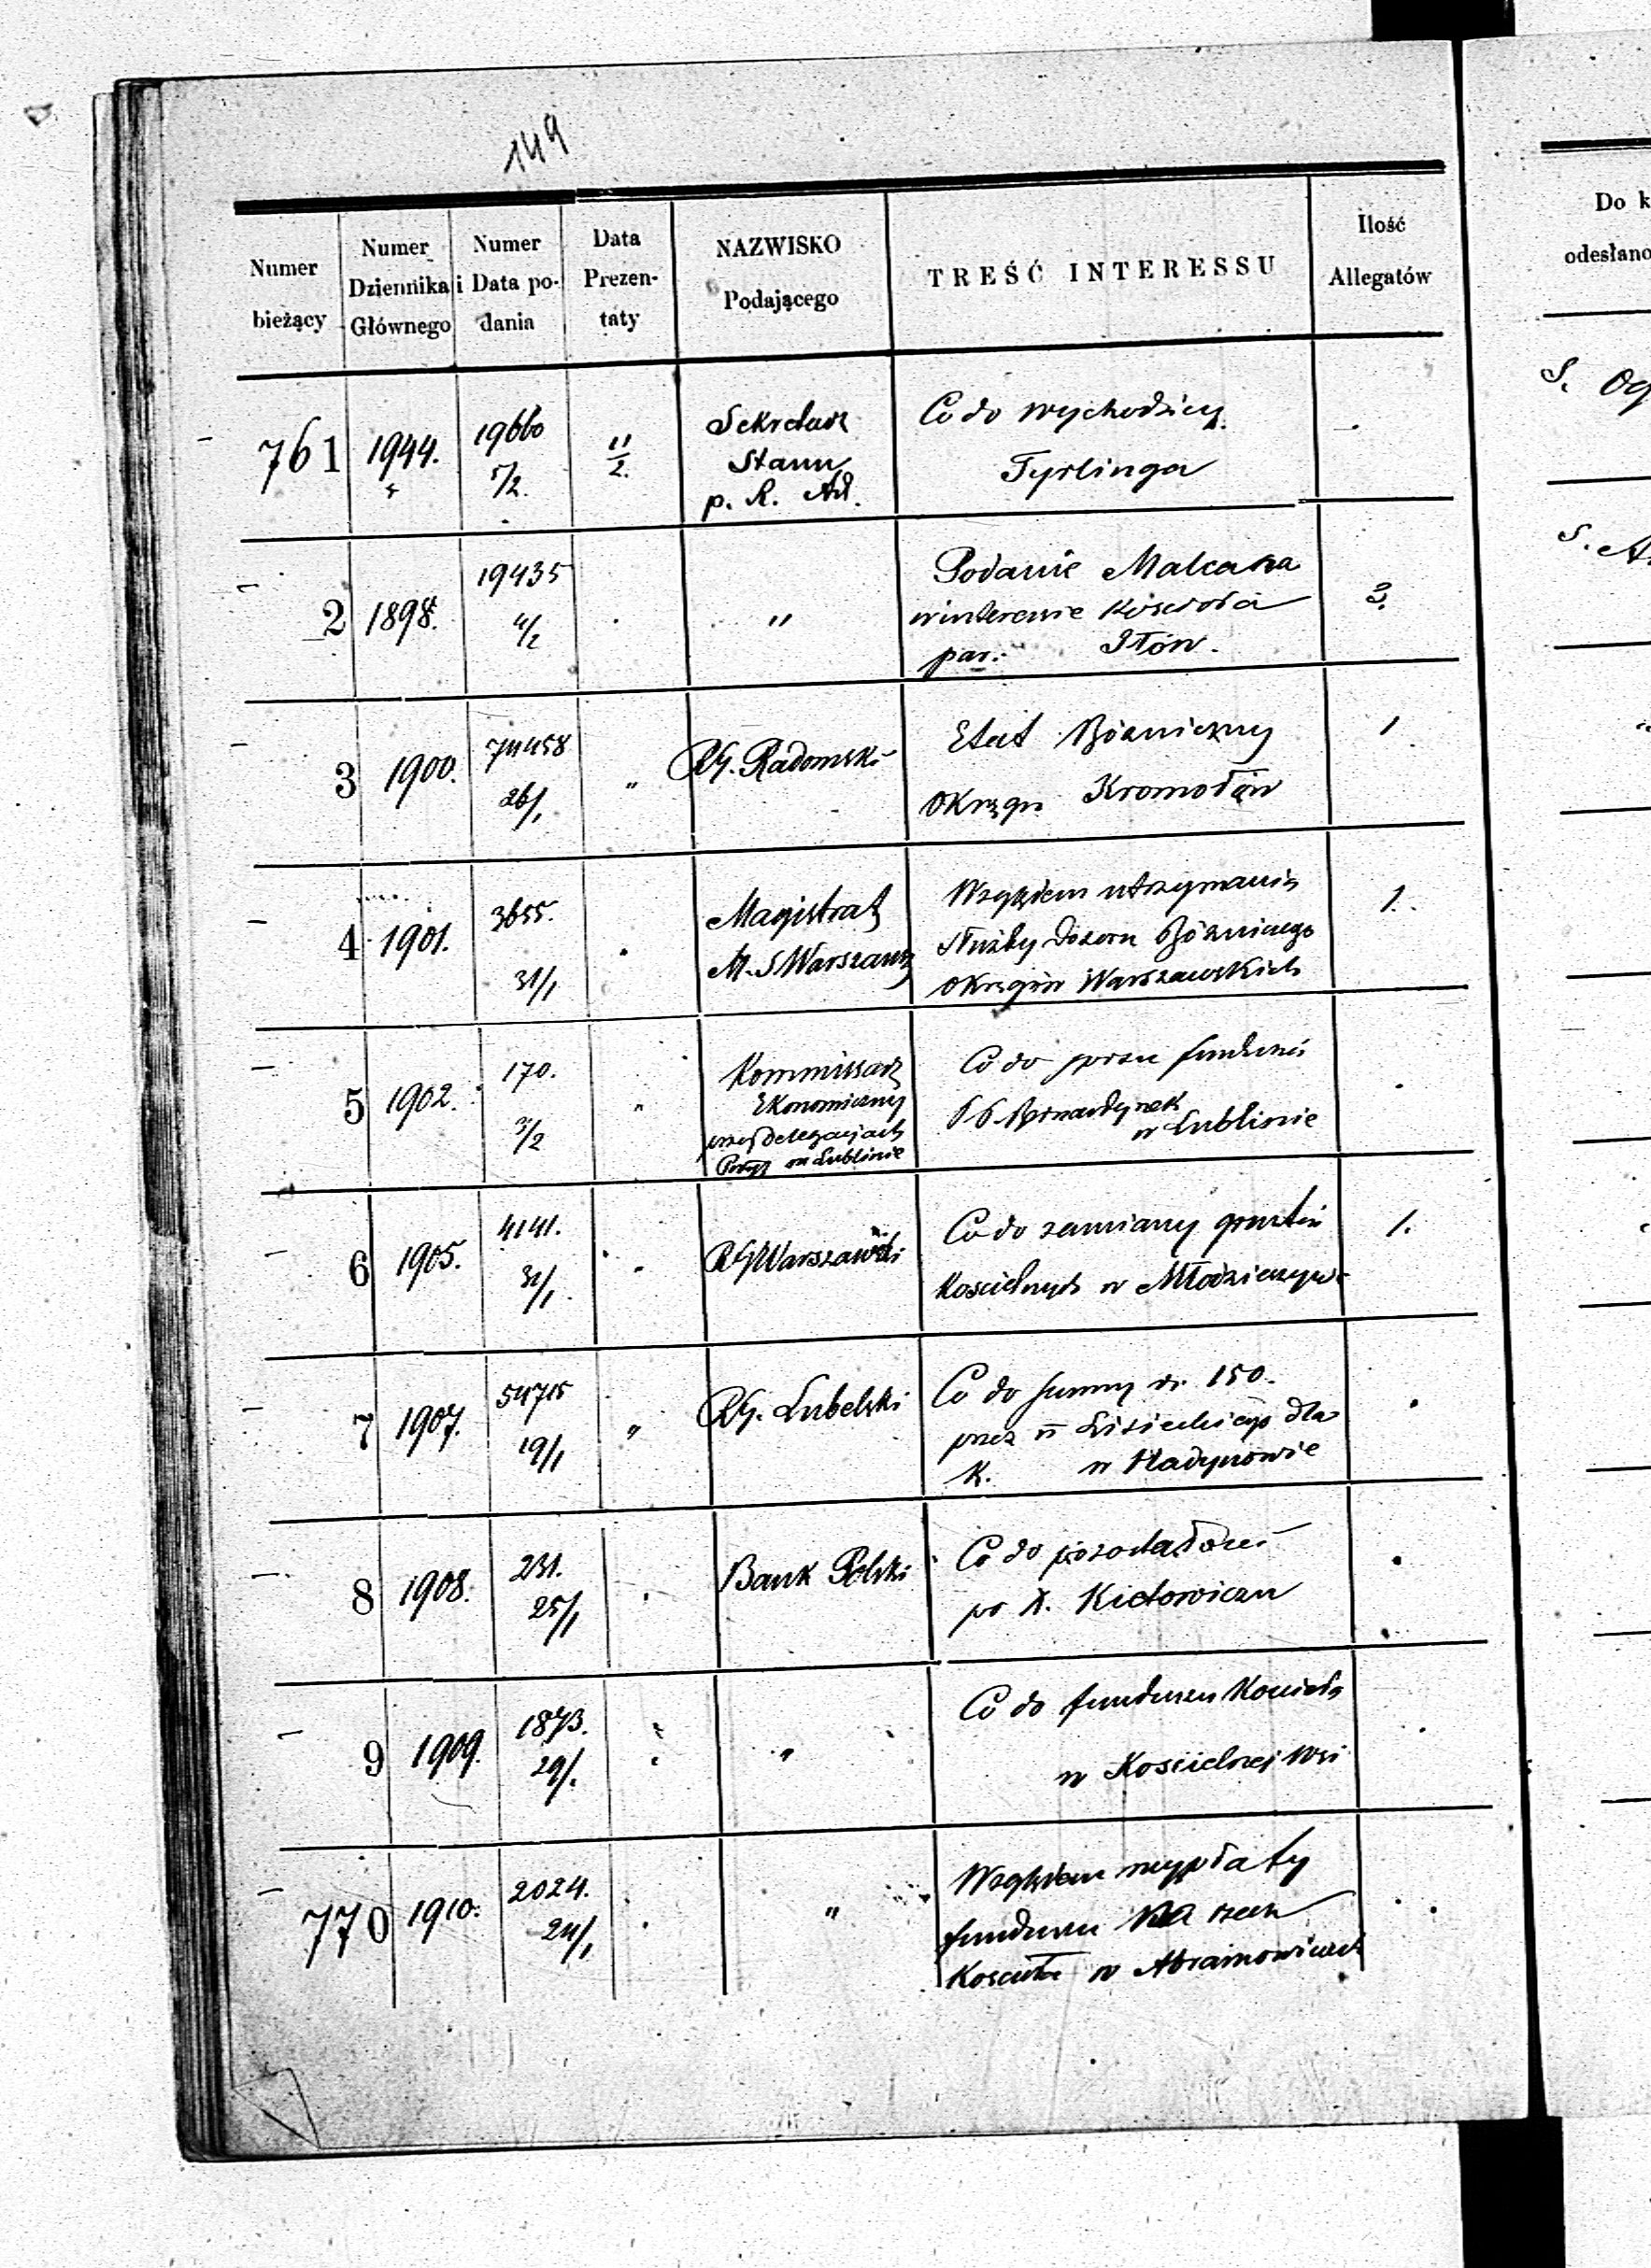 149
Numer bieżący
Numer Dziennika Głównego
Numer i Data podania
Data Prezentaty
NAZWISKO Podającego
TREŚĆ INTERESSU
Ilość Allegatów
Do k
odesłano
761 1944. 19660 5/2. 11/2. Sekretarz Co do wychodźcy
Stanu Tyrlinga
p. R. Ad.
S. Og
2 1898. 19435 4/2 " Podanie
w interesie Kościoła 3.
par. Iłów.
S.
3 1900. 74458 26/1 " RG. Radomski Etat Bóżniczny 1
Okręgu Kromołów
4 1901. 3655. 31/1 Magistrat Względem utrzymania 1.
M. S Warszawy Służby dozoru Bóżniczego
Okręgów Warszawskich
5 1902. 170. 3/2 " Kommissarz Co do funduszu
Ekonomiczny
przy Delegacjach PP. Bernardynek
w Lublinie w Lublinie
6 1905. 4141. 31/1 RG Warszawski Co do zamiany gruntów 1.
Kościelnych w
7 1907. 54715 19/1 " RG. Lubelski Co do summy 150.
przez Lisieckiego dla
K. w
8 1908. 231. 25/1 Bank Polski Co do pozostałości
po X. Kietowiczu
9 1909. 1873. 29/1 " Co do funduszu Kościoła
w Kościelnej Wsi
770 1910. 2024. 24/1 " Względem wypłaty
funduszu na rzecz
Kościoła w Abramowicach